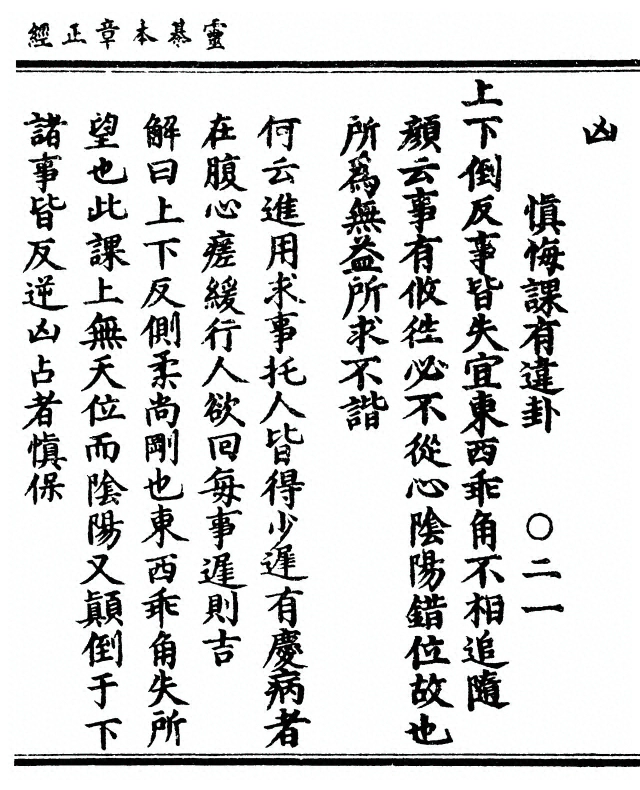 靈棊本章正經
凶
慎悔課有違卦　〇二一
上下倒反事皆失宜東西乖角不相追隨
顏云事有攸徃必不從心陰陽錯位故也
所為無益所求不諧
何云進用求事托人皆得少遲有慶病者
在腹心瘥緩行人欲回每事遲則吉
解曰上下反側柔尚剛也東西乖角失所
望也此課上無天位而陰陽又顛倒于下
諸事皆反逆凶占者慎保